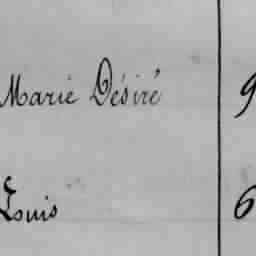 Marie Désiré 9
Louis 6